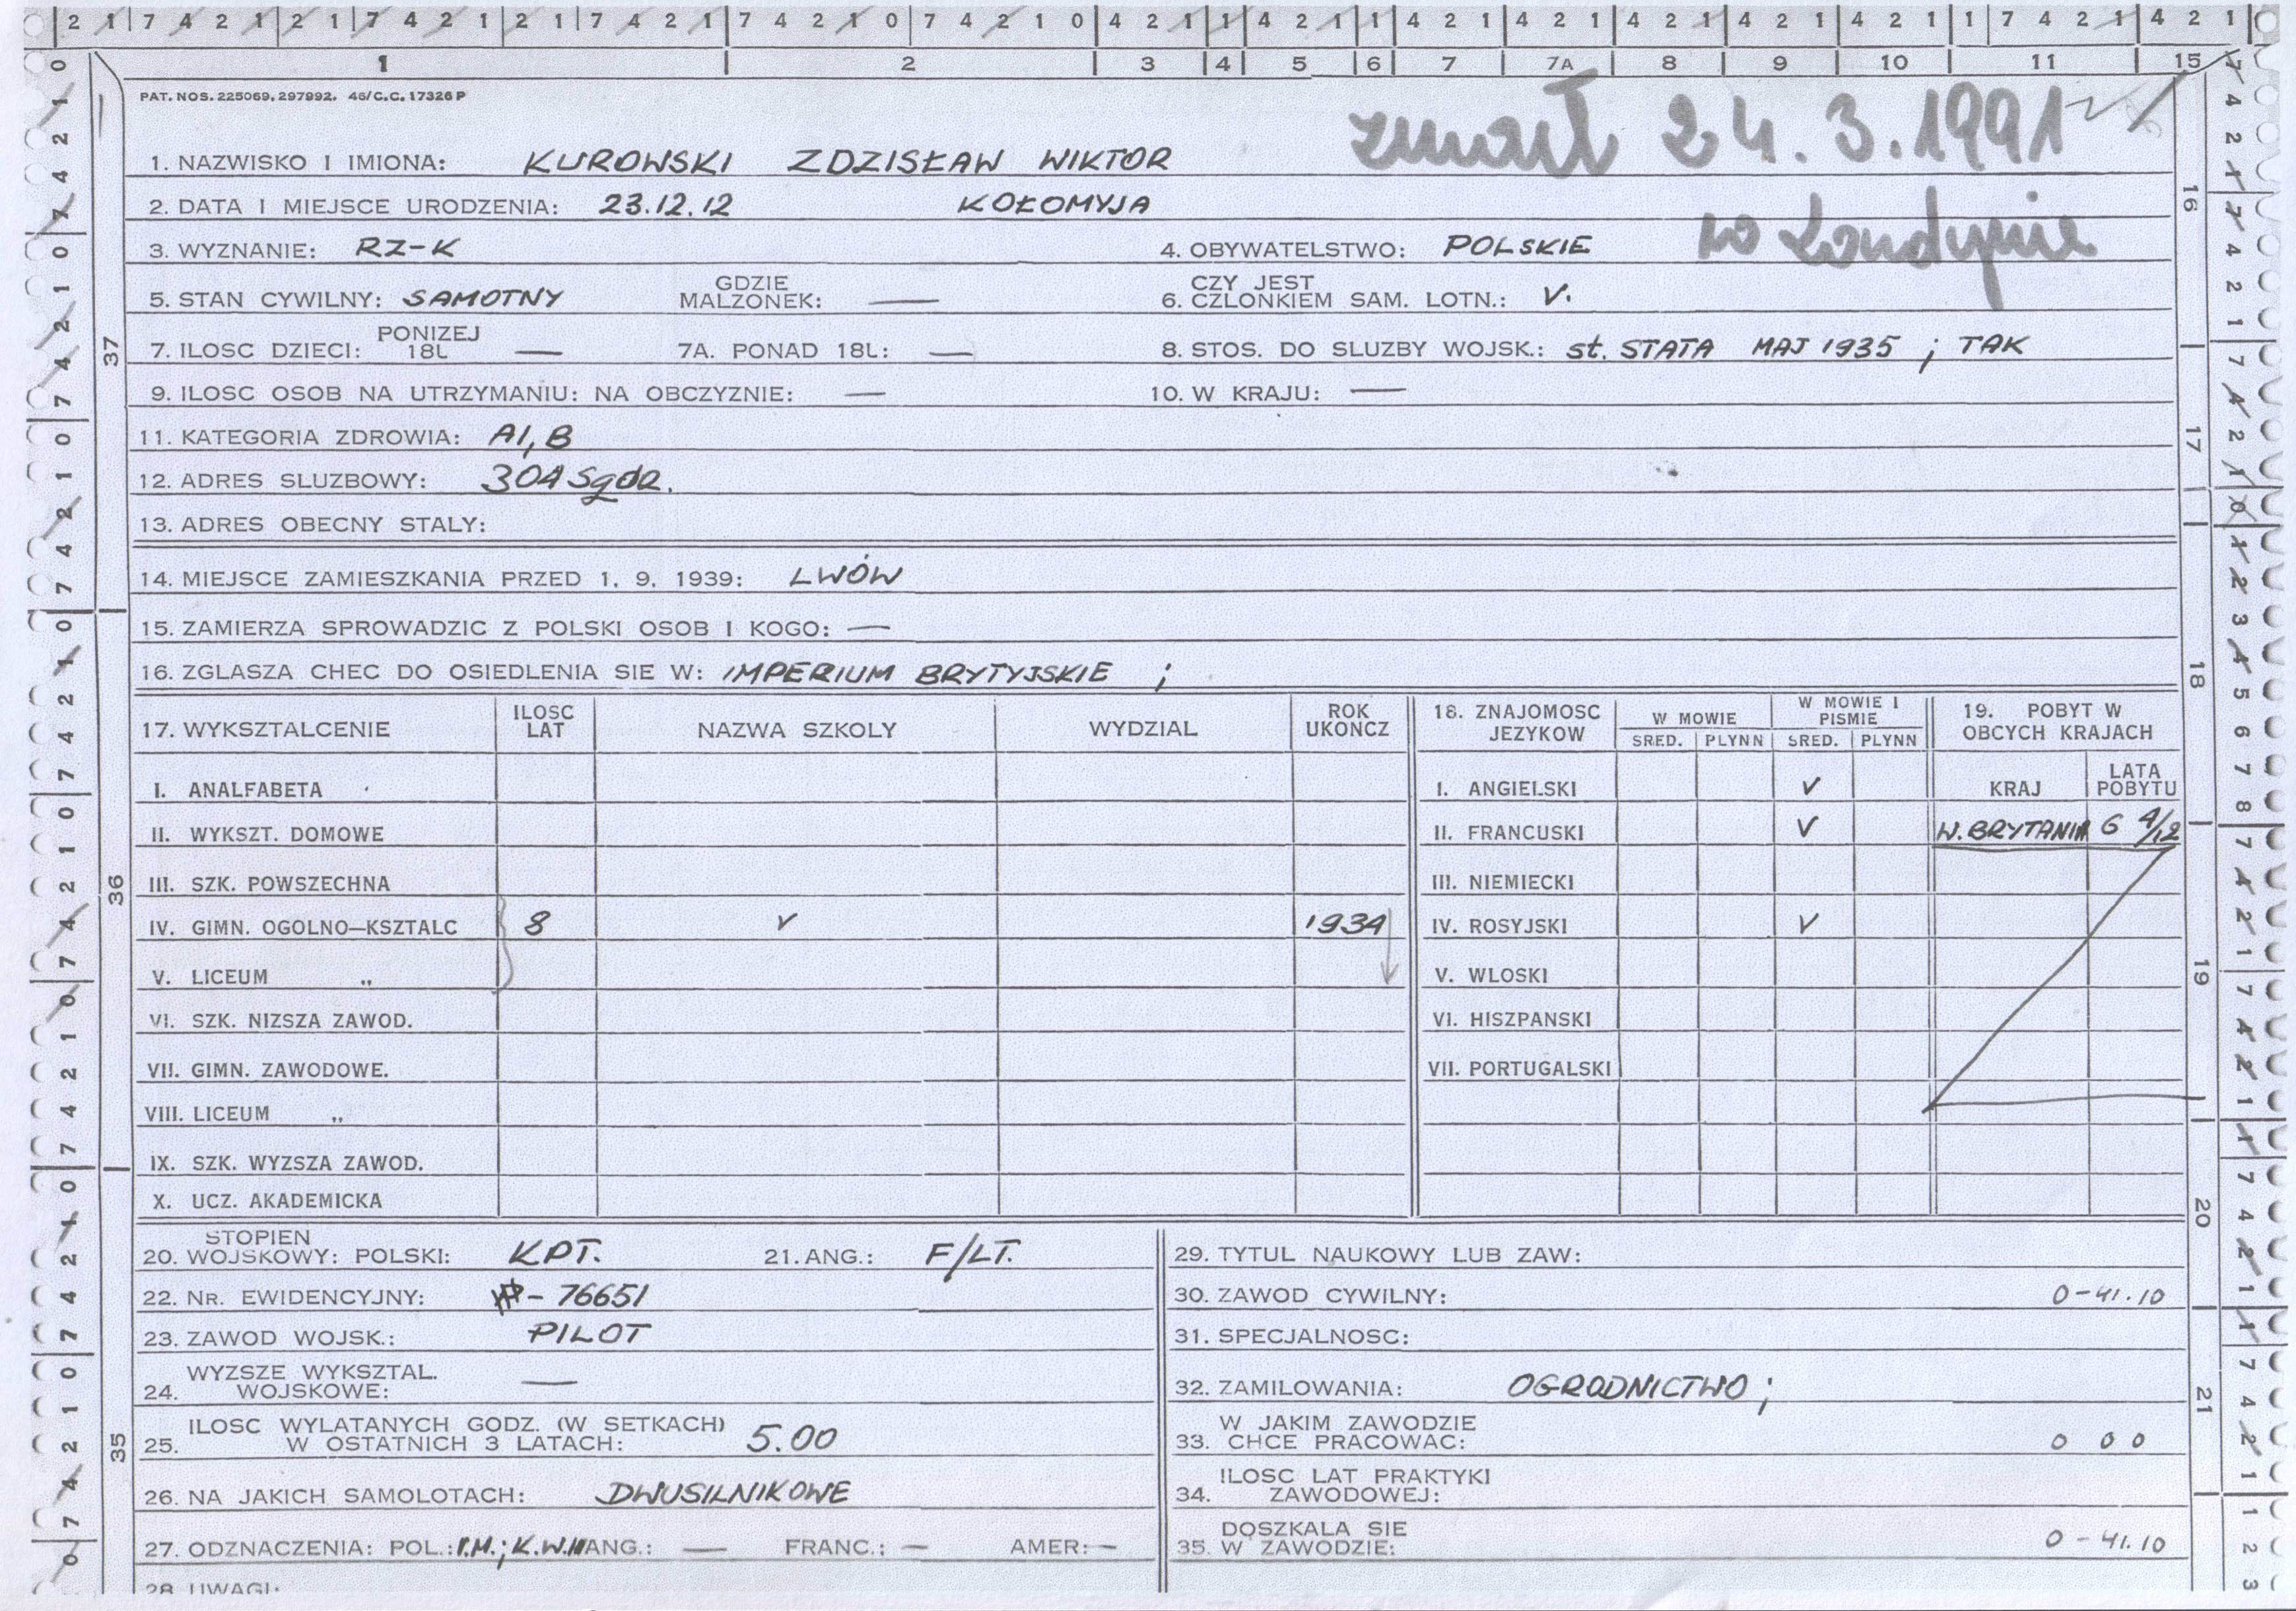 2 1 7 4 2 1 2 1 7 4 2 1 2 1 7 4 2 1 7 4 2 1 0 7 4 2 1 0 4 2 1 1 4 2 1 1 4 2 1 4 2 1 4 2 1 4 2 1 4 2 1 1 7 4 2 1 4 2 1
1 2 3 4 5 6 7 7A 8 9 10 11 15
PAT. NOS. 225069, 297992. 46/C.C. 17326 P
zmarł 24.3.1991
1. NAZWISKO I IMIONA: KUROWSKI ZDZISŁAW WIKTOR
2. DATA I MIEJSCE URODZENIA: 23.12.12 KOŁOMYJA
w Londynie
3. WYZNANIE: RZ-K 4. OBYWATELSTWO: POLSKIE
5. STAN CYWILNY: SAMOTNY GDZIE MALZONEK: — 6. CZY JEST CZLONKIEM SAM. LOTN.: V.
7. ILOSC DZIECI: PONIZEJ 18L — 7A. PONAD 18L: — 8. STOS. DO SLUZBY WOJSK.: st. STATA MAJ 1935 ; TAK
9. ILOSC OSOB NA UTRZYMANIU: NA OBCZYZNIE: — 10. W KRAJU: —
11. KATEGORIA ZDROWIA: A1, B
12. ADRES SLUZBOWY: 304 Sqdr.
13. ADRES OBECNY STALY:
14. MIEJSCE ZAMIESZKANIA PRZED 1. 9. 1939: LWÓW
15. ZAMIERZA SPROWADZIC Z POLSKI OSOB I KOGO: —
16. ZGLASZA CHEC DO OSIEDLENIA SIE W: IMPERIUM BRYTYJSKIE ;
17. WYKSZTALCENIE ILOSC LAT NAZWA SZKOLY WYDZIAL ROK UKONCZ
I. ANALFABETA
II. WYKSZT. DOMOWE
III. SZK. POWSZECHNA
IV. GIMN. OGOLNO—KSZTALC 8 V 1934
V. LICEUM „
VI. SZK. NIZSZA ZAWOD.
VII. GIMN. ZAWODOWE.
VIII. LICEUM „
IX. SZK. WYZSZA ZAWOD.
X. UCZ. AKADEMICKA
18. ZNAJOMOSC JEZYKOW W MOWIE W MOWIE I PISMIE
SRED. PLYNN SRED. PLYNN
I. ANGIELSKI V
II. FRANCUSKI V
III. NIEMIECKI
IV. ROSYJSKI V
V. WLOSKI
VI. HISZPANSKI
VII. PORTUGALSKI
19. POBYT W OBCYCH KRAJACH
KRAJ LATA POBYTU
W. BRYTANIA 6 4/12
20. STOPIEN WOJSKOWY: POLSKI: KPT. 21. ANG.: F/LT.
22. NR. EWIDENCYJNY: P-76651
23. ZAWOD WOJSK.: PILOT
24. WYZSZE WYKSZTAL. WOJSKOWE: —
25. ILOSC WYLATANYCH GODZ. (W SETKACH) W OSTATNICH 3 LATACH: 5.00
26. NA JAKICH SAMOLOTACH: DWUSILNIKOWE
27. ODZNACZENIA: POL.: V.M.; K.W.II ANG.: — FRANC.: — AMER: –
28. UWAGI:
29. TYTUL NAUKOWY LUB ZAW:
30. ZAWOD CYWILNY: 0-41.10
31. SPECJALNOSC:
32. ZAMILOWANIA: OGRODNICTWO ;
33. W JAKIM ZAWODZIE CHCE PRACOWAC: 0 0 0
34. ILOSC LAT PRAKTYKI ZAWODOWEJ:
35. DOSZKALA SIE W ZAWODZIE: 0-41.10
16
17
18
19
20
21
37
36
35